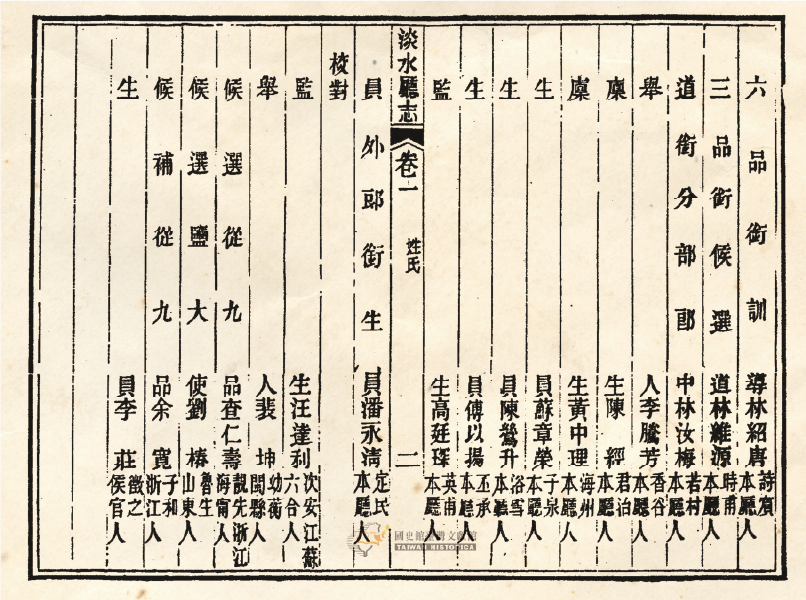 六品銜訓導林紹唐詩賓本廳人
三品銜候選道林維源時甫本廳人
道銜分部郎中林汝梅若村本廳人
舉人李騰芳香谷本廳人
廩生陳經君治本廳人
廩生黃中理海州本廳人
生員蘇章榮子泉本廳人
生員陳鶯升浴雪本廳人
生員傅以揚丕承本廳人
監生高廷琛英甫本廳人
淡水廳志 卷一 姓氏 二
員外郎銜生員潘永清定民本廳人
校對
監生汪達利次安江蘇六合人
舉人裴坤幼蘅閩縣人
候選從九品查仁壽靚先浙江海甯人
候選鹽大使劉椿魯生山東人
候補從九品余寬子和浙江人
生員李莊徵之侯官人
國史館臺灣文獻館
TAIWAN HISTORICA